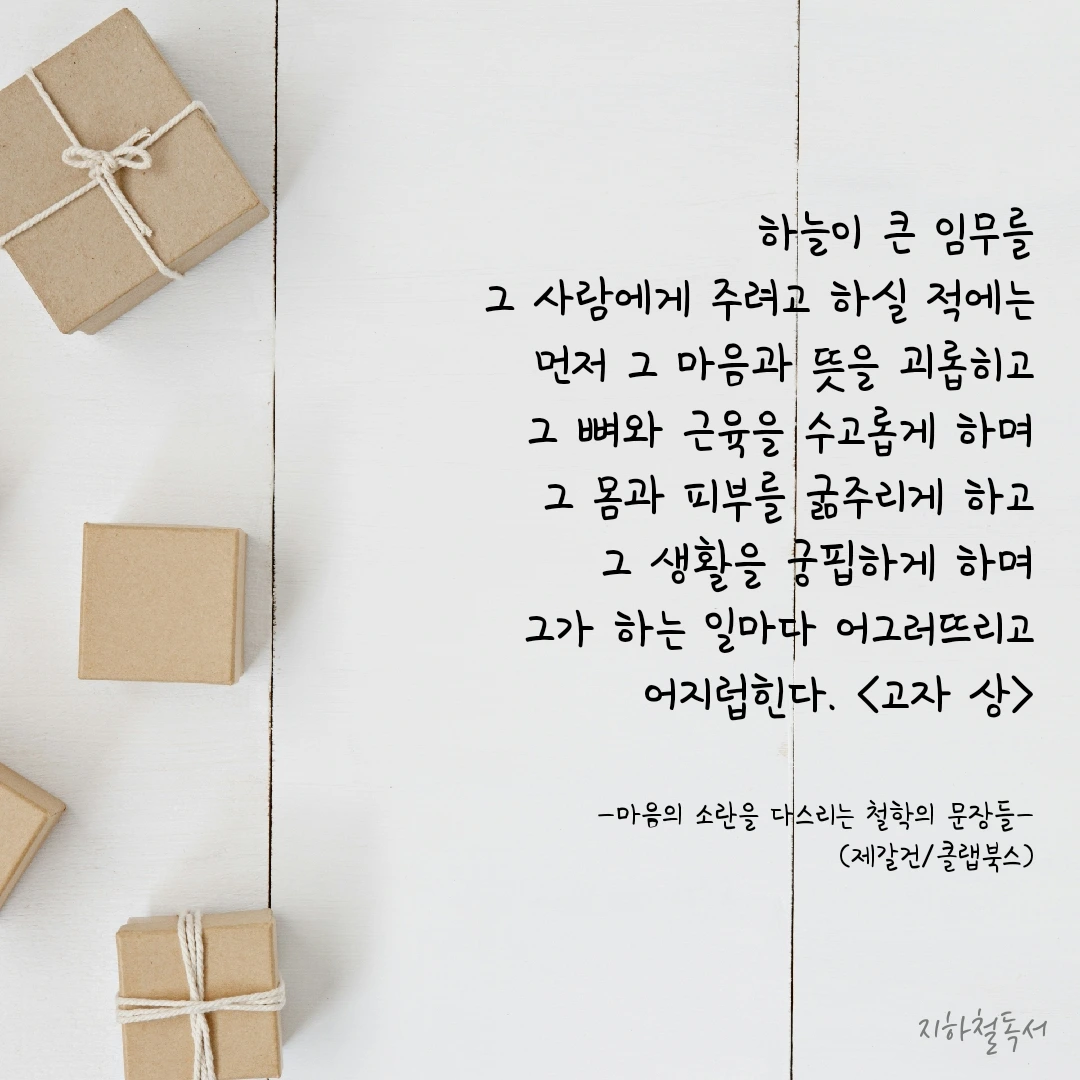 하늘이 큰 임무를
그 사람에게 주려고 하실 적에는
먼저 그 마음과 뜻을 괴롭히고
그 뼈와 근육을 수고롭게 하며
그 몸과 피부를 굶주리게 하고
그 생활을 궁핍하게 하며
그가 하는 일마다 어그러뜨리고
어지럽힌다. <고자 상>
-마음의 소란을 다스리는 철학의 문장들-
(제갈건/클랩북스)
지하철독서